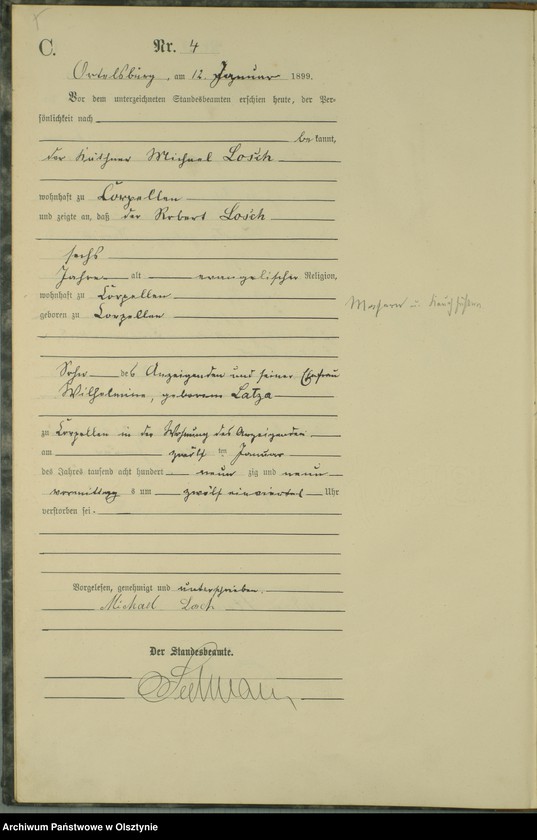 C.
Nr. 4
Ortelsburg, am 12. Januar 1899.
Vor dem unterzeichneten Standesbeamten erschien heute, der Per-
sönlichkeit nach
be kannt,
der Käthner Michael Losch
wohnhaft zu Corpellen
und zeigte an, daß der Robert Losch
sechs
Jahre alt evangelischer Religion,
wohnhaft zu Corpellen
geboren zu Corpellen
Masern u. Keuchhusten
Sohn des Anzeigenden und seiner Ehefrau
Wilhelmine, geborene Latza
zu Corpellen in der Wohnung des Anzeigenden
am zwölf ten Januar
des Jahres tausend acht hundert neun zig und neun
vormittag s um zwölf einviertel Uhr
verstorben sei.
Vorgelesen, genehmigt und unterschrieben.
Michael Losch
Der Standesbeamte.
Archiwum Państwowe w Olsztynie